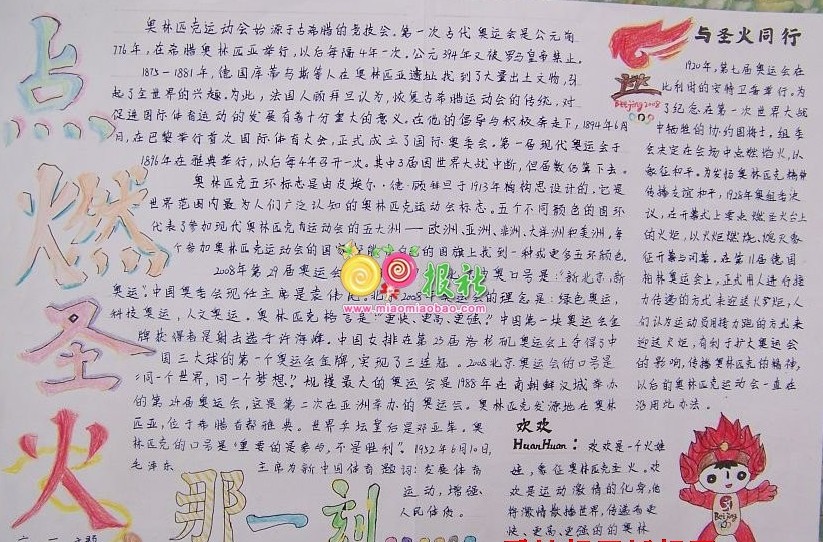 点燃圣火
奥林匹克运动会始源于古希腊的竞技会。第一次古代奥运会是公元前
776年，在希腊奥林匹亚举行，以后每隔4年一次。公元394年又被罗马皇帝禁止。
1875－1881年，德国库蒂与斯等人在奥林匹亚遗址找到了大量出土文物，引
起了全世界的兴趣。为此，法国人顾拜旦认为，恢复古希腊运动会的传统，对
促进国际体育运动的发展有着十分重大的意义。在他的倡导与积极奔走下，1894年6月
日，在巴黎举行首次国际体育大会，正式成立了国际奥委会。第一届现代奥运会于
1896年在雅典举行，以后每4年召开一次。其中3届因世界大战中断，但届数仍算下去。
奥林匹克五环标志是由皮埃尔·德·顾拜旦于1913年构思设计的，它是
世界范围内最为人们广泛认知的奥林匹克运动会标志。五个不同颜色的圆环
代表了参加现代奥林匹克运动会的五大洲——欧洲、亚洲、非洲、大洋洲和美洲，每
个参加奥林匹克运动会的国家 的国旗上找到一种或更多五环颜色
2008年第29届奥运会 奥口号是："新北京，新
奥运"。中国奥委会现任主席是袁伟民。北京2008年奥运会的理念是：绿色奥运，
科技奥运，人文奥运。奥林匹克格言是"更快、更高、更强。"中国第一块奥运会金
牌获得者是射击选手许海峰。中国女排在第23届洛杉矶奥运会上夺得了中
国三大球的第一个奥运会金牌，实现了三连冠。2008北京奥运会的口号是
"同一个世界，同一个梦想"？规模最大的奥运会是1988年在南朝鲜汉城举办
的第24届奥运会，这是第二次在亚洲举办的奥运会。奥林匹克发源地在奥林
匹亚，位于希腊首都雅典。世界乒坛皇后是邓亚萍。奥
林匹克的口号是"重要的是参与，不是胜利"。1952年6月10日，
毛泽东 主席为新中国体育题词：发展体育
运动，增强
人民体质。
那一刻
Beijing 2008
与圣火同行
1920年，第七届奥运会在
比利时的安特卫普举行。为
了纪念在第一次世界大战
中牺牲的协约国将士，组委
会决定在会场中点燃焰火，以
象征和平。为发扬奥林匹克精神
传播友谊和平，1928年奥组委决
议，在开幕式上要点燃圣火台上
的火炬，以火炬燃烧、熄灭象
征开幕与闭幕。在第11届德国
柏林奥运会上，正式用人进行接
力传递的方式来迎送火炬，人
们认为运动员用接力跑的方式来
迎送火炬，有利于扩大奥运会
的影响，传播奥林匹克的精神，
以后的奥林匹克运动会一直在
沿用此办法。
欢欢
HuanHuan：欢欢是一个火娃
娃，象征奥林匹克圣火。欢
欢是运动激情的化身，他
将激情散播世界，传递着更
快、更高、更强的的奥林
Beijing
报社
www.miaomiaobao.com